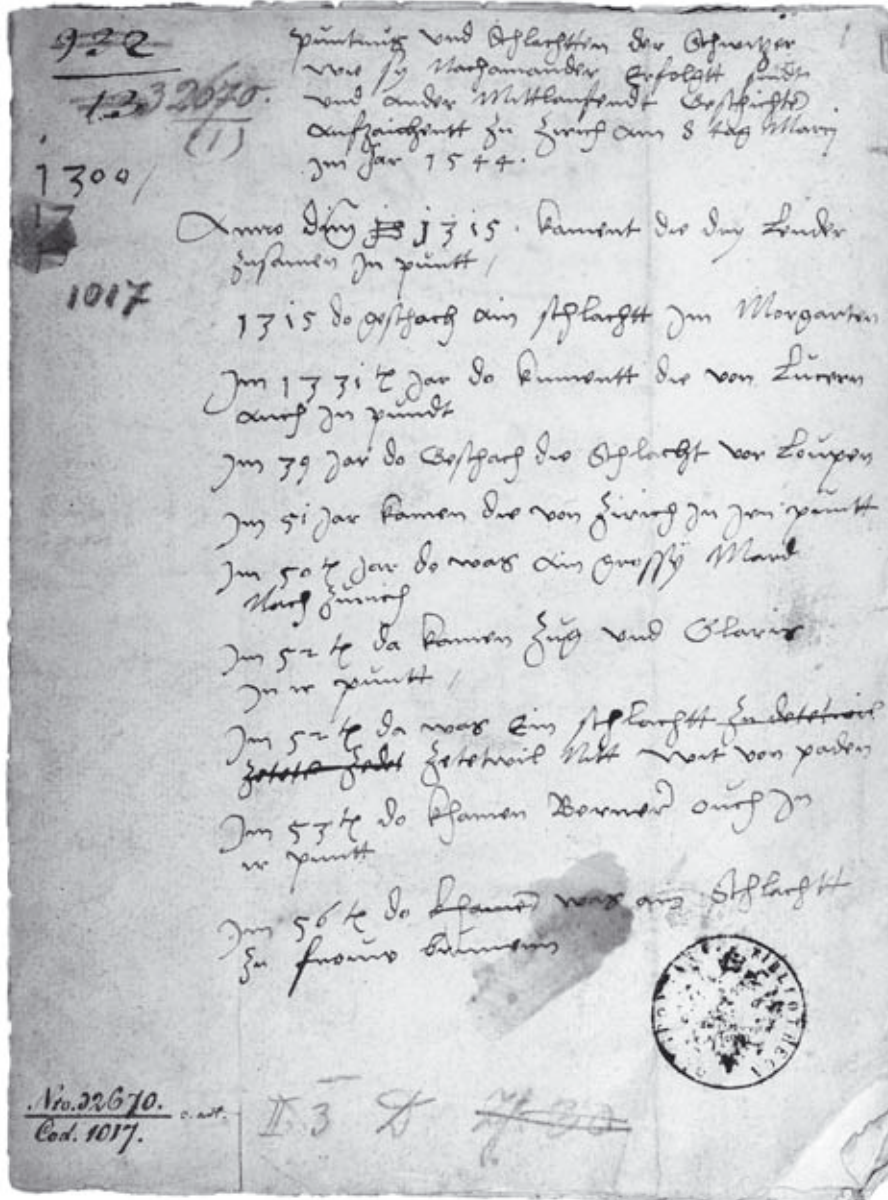 922
püntnus und Schlachtten der Schwitzer
wie sy Nachainander Erfolgtt sindt
und ander Mittlaufendt Geschichten
aufzaichentt zu Zirich am 8 tag Marcj
Im Jar 1544.
32670.
(1)
1300/
1017
Anno dm̄ 1315. kament die dry Lender
zusamen In püntt/
1315 do geschach ain schlachtt Im Morgarten
Im 1331 Jar do kament die von Lucern
auch In pündt
Im 39 Jar do Geschach die Schlacht vor Loupen
Im 51 Jar kamen die von Zirich In jren püntt
Im 50 Jar do was ain grossy Mard
Nach Zürich
Im 52 da kamen Zug und Glaris
In ir püntt/
Im 52 da was Ein schlachtt zu detetwil
zetetwil Nitt wit von paden
Im 53 do khamen Berner ouch In
ir püntt
Im 56 do khamen was ain Schlachtt
zu frouwe brunnenn
BIBLIOTHECA
Nro. 32670.
Cod. 1017.
II 3 D